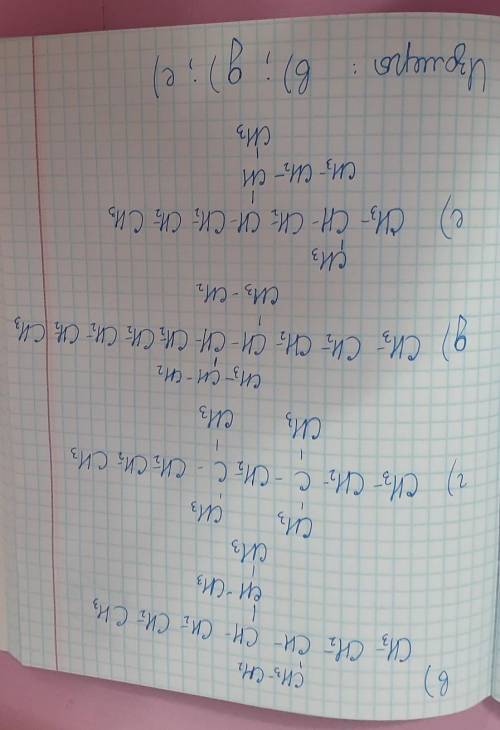 CH₃-CH₂
в) CH₃-CH₂-CH-CH-CH₂-CH₂-CH₃
CH-CH₃
CH₃
CH₃ CH₃
г) CH₃-CH₂-C-CH₂-C-CH₂-CH₂-CH₃
CH₃ CH₃
CH₃-CH-CH₂
д) CH₃-CH₂-CH₂-CH-CH-CH₂-CH₂-CH₂-CH₂-CH₃
CH₃-CH₂
CH₃
е) CH₃-CH-CH₂-CH-CH₂-CH₂-CH₃
CH₃-CH₂-CH CH
CH₃
Изомеры: в); д); е)